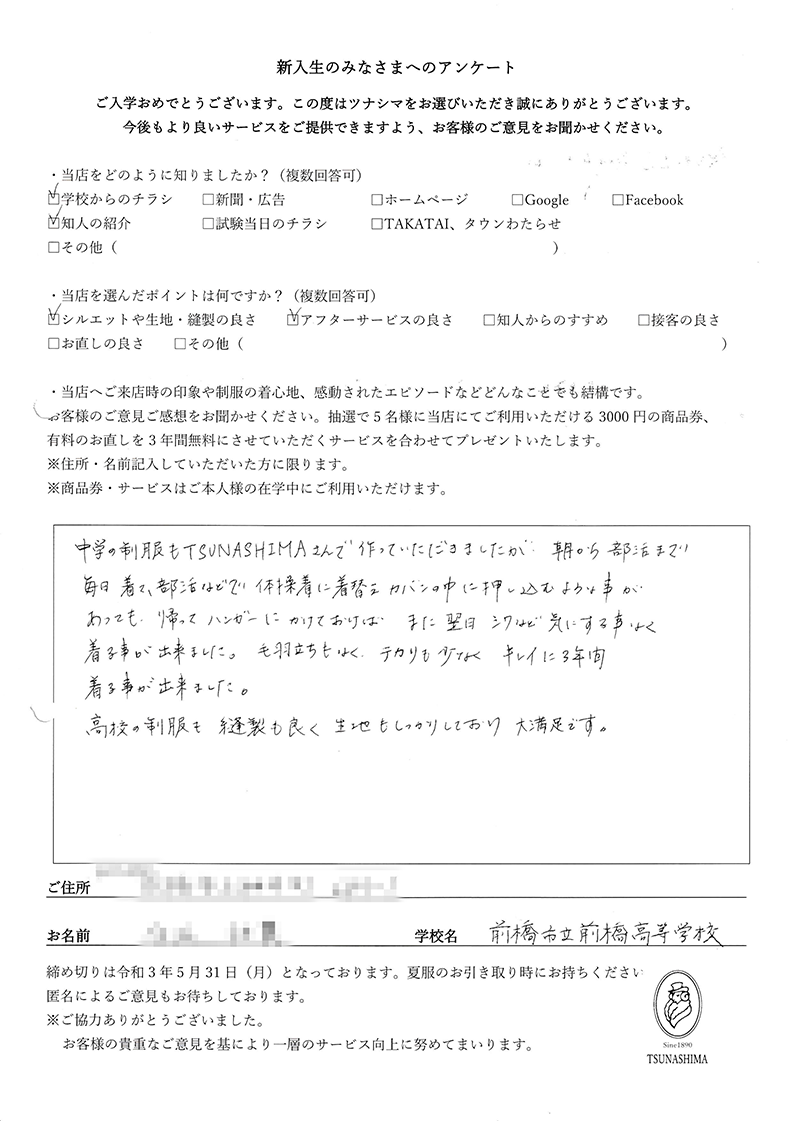 新入生のみなさまへのアンケート
ご入学おめでとうございます。この度はツナシマをお選びいただき誠にありがとうございます。
今後もより良いサービスをご提供できますよう、お客様のご意見をお聞かせください。
・当店をどのように知りましたか？（複数回答可）
☑学校からのチラシ □新聞・広告 □ホームページ □Google □Facebook
☑知人の紹介 □試験当日のチラシ □TAKATAI、タウンわたらせ
□その他（ ）
・当店を選んだポイントは何ですか？（複数回答可）
☑シルエットや生地・縫製の良さ ☑アフターサービスの良さ □知人からのすすめ □接客の良さ
□お直しの良さ □その他（ ）
・当店へご来店時の印象や制服の着心地、感動されたエピソードなどどんなことでも結構です。
お客様のご意見ご感想をお聞かせください。抽選で5名様に当店にてご利用いただける3000円の商品券、
有料のお直しを3年間無料にさせていただくサービスを合わせてプレゼントいたします。
※住所・名前記入していただいた方に限ります。
※商品券・サービスはご本人様の在学中にご利用いただけます。
中学の制服もTSUNASHIMAさんで作っていただきましたが 朝から部活まで
毎日着て、部活などで体操着に着替え カバンの中に押し込むような事が
あっても、帰ってハンガーにかけておけば また翌日シワなど気にする事なく
着る事が出来ました。毛羽立ちもなく、テカリも少なく キレイに3年間
着る事が出来ました。
高校の制服も 縫製も良く 生地もしっかりしており 大満足です。
ご住所
お名前 学校名 前橋市立前橋高等学校
締め切りは令和3年5月31日（月）となっております。夏服のお引き取り時にお持ちください
匿名によるご意見もお待ちしております。
※ご協力ありがとうございました。
お客様の貴重なご意見を基により一層のサービス向上に努めてまいります。
Sine1890
TSUNASHIMA